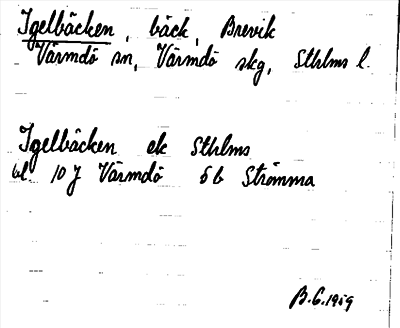 Igelbäcken, bäck, Brevik
Värmdö sn, Värmdö skg, Sthlms l.
Igelbäcken ek Sthlms
bl. 10 J Värmdö 5b Strömma
B.G. 1959